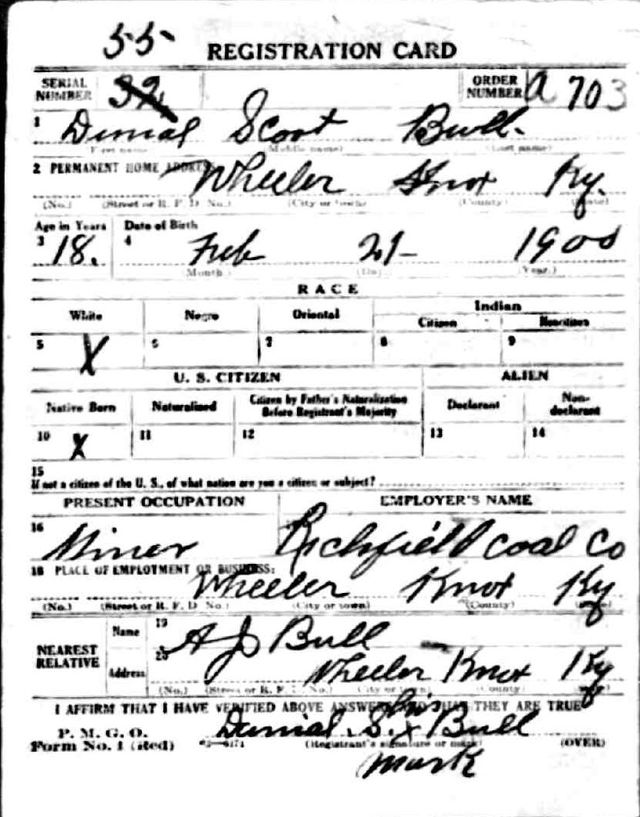 55
REGISTRATION CARD
SERIAL NUMBER 32 ORDER NUMBER A 703
1 Dunial Scoot Bull.
(First name) (Middle name) (Last name)
2 PERMANENT HOME ADDRESS: Wheeler Knox Ky.
(No.) (Street or R. F. D. No.) (City or town) (County) (State)
Age in Years Date of Birth
3 18. 4 Feb 21 1900
(Month.) (Day.) (Year.)
RACE
White Negro Oriental Indian
Citizen Noncitizen
5 X 6 7 8 9
U. S. CITIZEN ALIEN
Native Born Naturalized Citizen by Father's Naturalization Before Registrant's Majority Declarant Non-declarant
10 X 11 12 13 14
15
If not a citizen of the U. S., of what nation are you a citizen or subject?
PRESENT OCCUPATION EMPLOYER'S NAME
16 Miner Richfield Coal Co
18 PLACE OF EMPLOYMENT OR BUSINESS:
Wheeler Knox Ky
(No.) (Street or R. F. D. No.) (City or town) (County)
NEAREST RELATIVE Name 19 A J Bull
Address 20 Wheeler Knox Ky
(No.) (Street or R. F. D. No.) (City or town) (County)
I AFFIRM THAT I HAVE VERIFIED ABOVE ANSWERS AND THAT THEY ARE TRUE
P. M. G. O.
Form No. 1 (Red) Dunial. S. his x Bull
(Registrant's signature or mark) (OVER)
mark